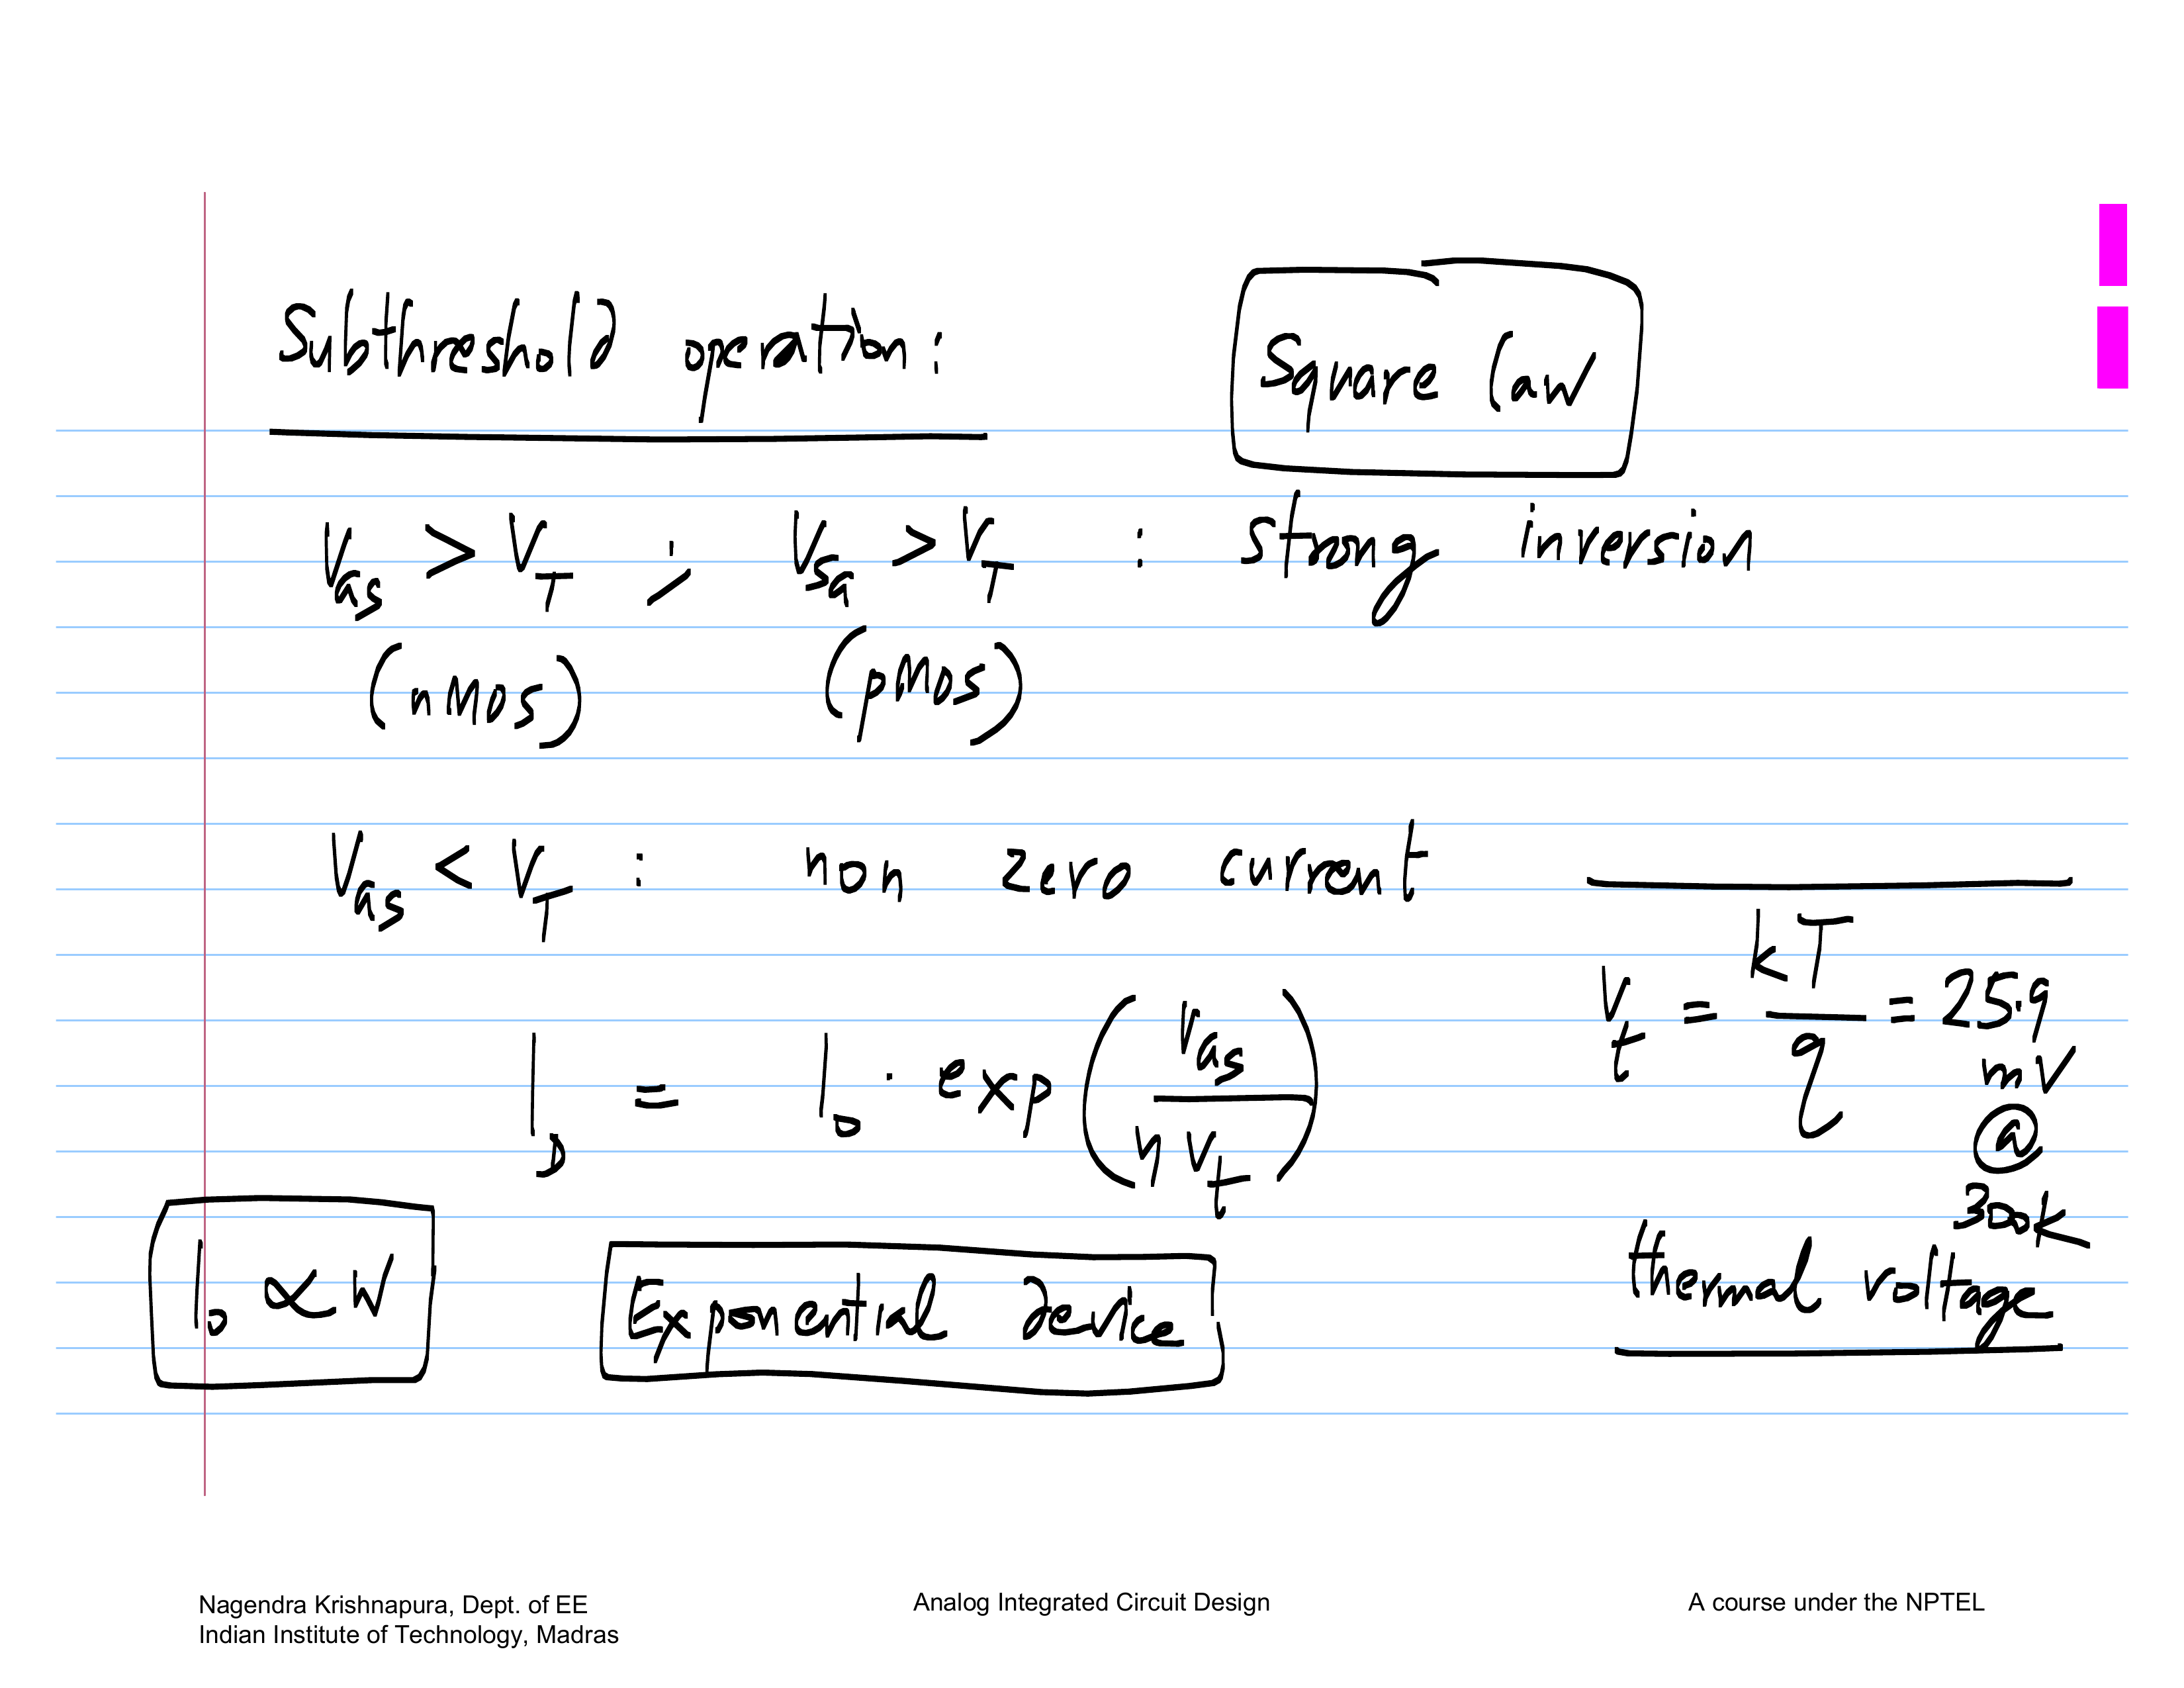 Subthreshold operation:
Square law
V_GS > V_T ; V_SG > V_T : strong inversion
(nMOS) (pMOS)
V_GS < V_T : non zero current
I_D = I_0 · exp(V_GS / ηV_t)
V_t = kT / q = 25.9 mV @ 300K
thermal voltage
I_0 ∝ W
Exponential device
Nagendra Krishnapura, Dept. of EE
Indian Institute of Technology, Madras
Analog Integrated Circuit Design
A course under the NPTEL